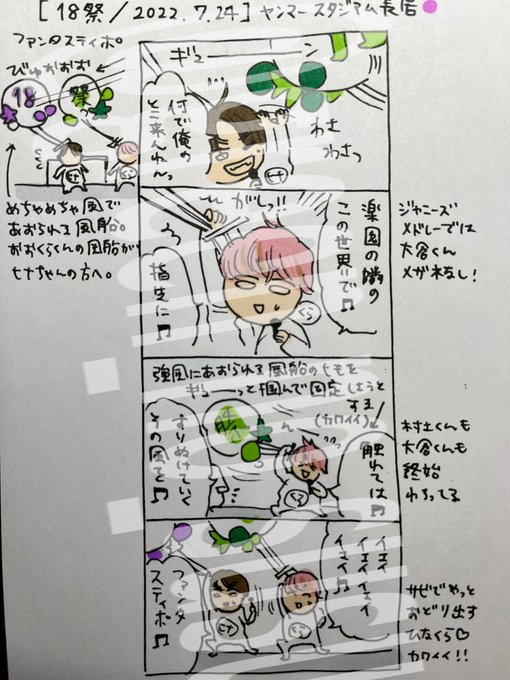 [18祭/2022.7.24]ヤンマースタジアム長居
ファンタスティポ
びゅおおお
18
祭
めちゃめちゃ風で
あおられる風船。
おおくらくんの風船が
ヒナちゃんの方へ。
ギューーーン
わさ
わさっ
何で俺の
とこ来んねんっ
ヒナ
ガしっ!!
楽園の隣の
この世界で♪
指先に♪
くら
ジャニーズ
メドレーでは
大倉くん
メガネなし!
強風にあおられる風船のヒモを
ギューーっと掴んで固定しようと
する
(カワイイ)
触れては♪
すりぬけていく
その風を♪
村上くんも
大倉くんも
終始
わろってる
イエイ
イエイ
イエイ イエイ
イエイ♪
ファンタ
スティポ♪
ヒナ
サビでやっと
おどり出す
ひなくら♡
カワイイ!!